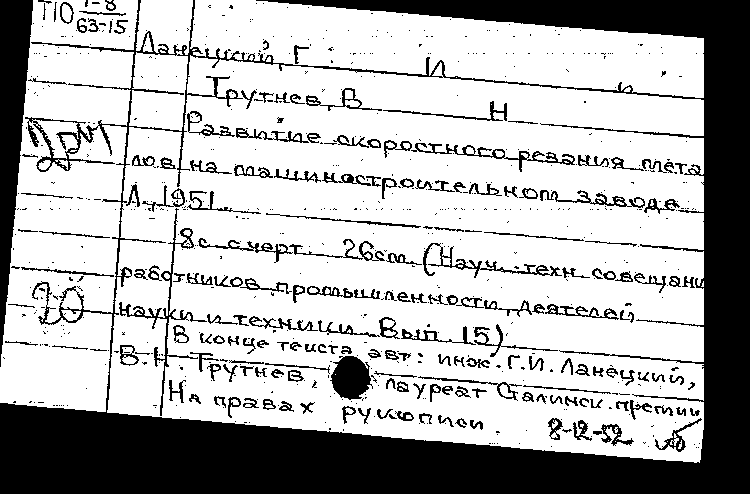 Т10 1-8
63-15
Ланецкий, Г : И и
Трутнев, В Н
Развитие скоростного резания метал
лов на машиностроительном заводе
Л., 1951.
8с. с черт. 26cm. (Науч.-техн. совещани
работников промышленности, деятелей
20
науки и техники. Вып. 15)
В конце текста авт: инж. Г.И. Ланецкий,
В.Н. Трутнев, лауреат Сталинск. премии
На правах рукописи. 8-12-52